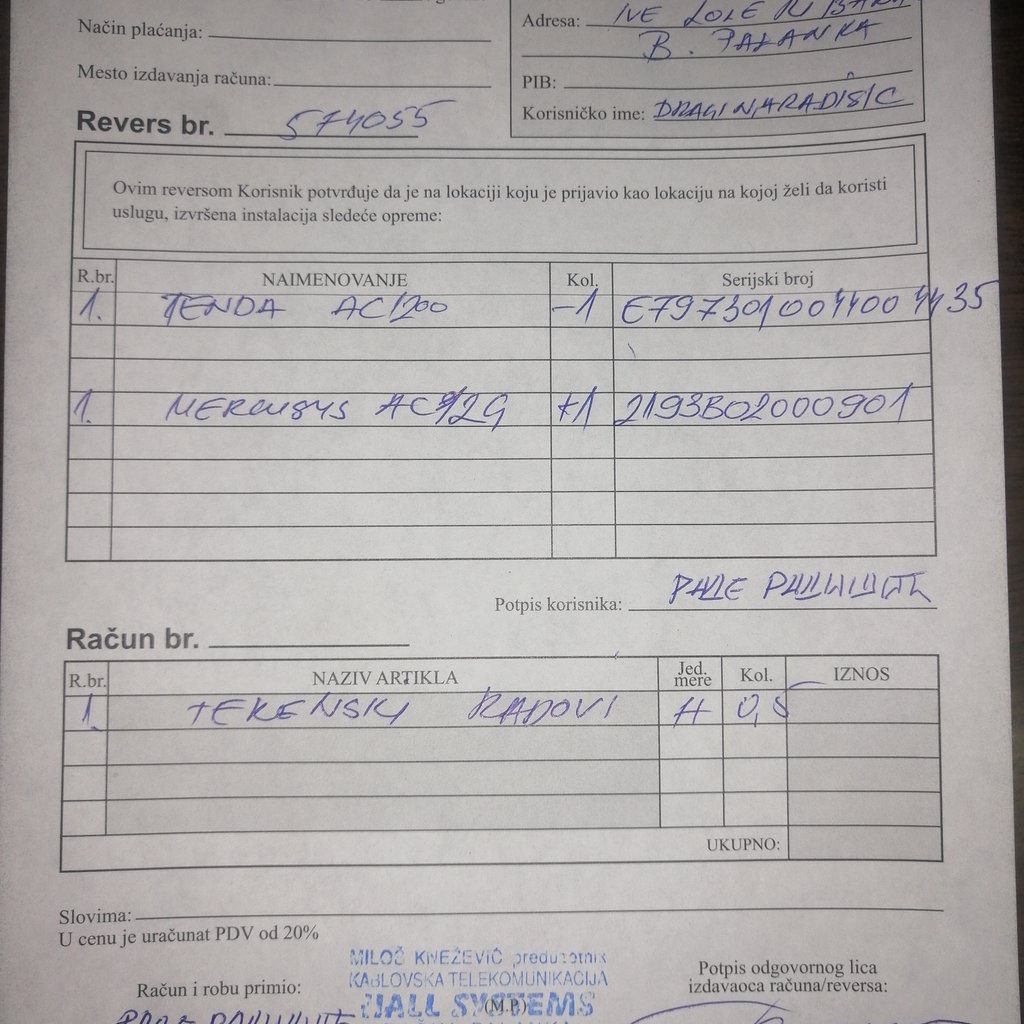 Način plaćanja:
Adresa: IVE LOLE RIBARA
B. PALANKA
Mesto izdavanja računa:
PIB:
Korisničko ime:
Revers br. 574055
Ovim reversom Korisnik potvrđuje da je na lokaciji koju je prijavio kao lokaciju na kojoj želi da koristi
uslugu, izvršena instalacija sledeće opreme:
R.br. NAIMENOVANJE Kol. Serijski broj
1. TENDA AC1200 -1 E7973010044004435
1. MERCUSYS AC12G +1 2193B02000901
Potpis korisnika:
Račun br.
R.br. NAZIV ARTIKLA Jed. mere Kol. IZNOS
1. TERENSKI RADOVI H 0,5
UKUPNO:
Slovima:
U cenu je uračunat PDV od 20%
MILOŠ KNEŽEVIĆ preduzetnik
KABLOVSKA TELEKOMUNIKACIJA
SYSTEMS
(M.P.)
Račun i robu primio:
Potpis odgovornog lica
izdavaoca računa/reversa: